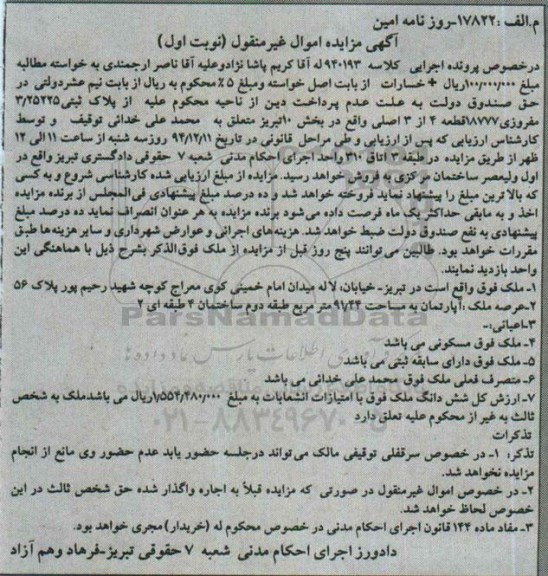 م.الف :۱۷۸۲۲-روز نامه امین
آگهی مزایده اموال غیرمنقول (نوبت اول)
درخصوص پرونده اجرایی کلاسه ۹۴۰۱۹۳ له آقا کریم پاشا نژادوعلیه آقا ناصر ارجمندی به خواسته مطالبه
مبلغ ۱۰۰/۰۰۰/۰۰۰ریال + خسارات از بابت اصل خواسته ومبلغ ۵٪ محکوم به ریال از بابت نیم عشردولتی در
حق صندوق دولت به علت عدم پرداخت دین از ناحیه محکوم علیه از پلاک ثبتی۳/۲۵۲۲۵
مفروزی۱۸۷۷۷قطعه ۴ از ۳ اصلی واقع در بخش ۱۰تبریز متعلق به محمد علی خدائی توقیف و توسط
کارشناس ارزیابی که پس از ارزیابی و طی مراحل قانونی در تاریخ ۹۴/۱۲/۱۱ روزسه شنبه از ساعت ۱۱ الی ۱۲
ظهر از طریق مزایده در طبقه۳ اتاق ۳۱۰ واحد اجرای احکام مدنی شعبه ۷ حقوقی دادگستری تبریز واقع در
اول ولیعصر ساختمان مرکزی به فروش خواهد رسید. مزایده از مبلغ ارزیابی شده کارشناسی شروع و به کسی
که بالاترین مبلغ را پیشنهاد نماید فروخته خواهد شد و ده درصد مبلغ پیشنهادی فی‌المجلس از برنده مزایده
اخذ و به مابقی حداکثر یک ماه فرصت داده می‌شود برنده مزایده به هر عنوان انصراف نماید ده درصد مبلغ
پیشنهادی به نفع صندوق دولت ضبط خواهد شد. هزینه‌های اجرائی و عوارض شهرداری و سایر هزینه‌ها طبق
مقررات خواهد بود. طالبین می‌توانند پنج روز قبل از مزایده از ملک فوق‌الذکر بشرح ذیل با هماهنگی این
واحد بازدید نمایند.
۱- ملک فوق واقع است در تبریز- خیابان: لاله میدان امام خمینی کوی معراج کوچه شهید رحیم پور پلاک ۵۶
۲-عرصه ملک :آپارتمان به مساحت ۹۱/۴۴ متر مربع طبقه دوم ساختمان ۴ طبقه ای ۲
۳-اعیانی:-
۴- ملک فوق مسکونی می باشد
۵- ملک فوق دارای سابقه ثبتی می باشد
۶- متصرف فعلی ملک فوق محمد علی خدائی می باشد
۷- ارزش کل شش دانگ ملک فوق با امتیازات انشعابات به مبلغ ۱/۵۵۴/۴۸۰/۰۰۰ریال می باشدملک به شخص
ثالث به غیر از محکوم علیه تعلق دارد
تذکرات
تذکر: ۱- در خصوص سرقفلی توقیفی مالک می‌تواند درجلسه حضور یابد عدم حضور وی مانع از انجام
مزایده نخواهد شد.
۲- در خصوص اموال غیرمنقول در صورتی که مزایده قبلاً به اجاره واگذار شده حق شخص ثالث در این
خصوص لحاظ خواهد شد.
۳- مفاد ماده ۱۴۴ قانون اجرای احکام مدنی در خصوص محکوم له (خریدار) مجری خواهد بود.
دادورز اجرای احکام مدنی شعبه ۷ حقوقی تبریز-فرهاد وهم آزاد
ParsNamadData
۰۲۱-۸۸۳۴۹۶۷۰